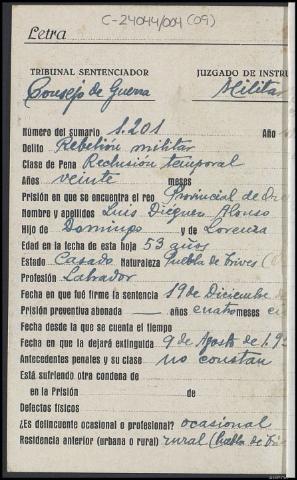 C-24044/004 (09)
Letra
TRIBUNAL SENTENCIADOR JUZGADO DE INSTRU
Consejo de Guerra Militar
Número del sumario 1.201 Año
Delito Rebelión militar
Clase de Pena Reclusión temporal
Años veinte meses
Prisión en que se encuentra el reo Provincial de Or
Nombre y apellidos Luis Diéguez Alonso
Hijo de Domingo y de Lorenza
Edad en la fecha de esta hoja 53 años
Estado Casado Naturaleza Puebla de Trives (
Profesión Labrador
Fecha en que fué firme la sentencia 19 de Diciembre de
Prisión preventiva abonada — años cuatro meses
Fecha desde la que se cuenta el tiempo
Fecha en que la dejará extinguida 9 de Agosto de 1.95
Antecedentes penales y su clase no constan
Está sufriendo otra condena de
en la Prisión de
Defectos físicos
¿Es delincuente ocasional o profesional? ocasional
Residencia anterior (urbana o rural) rural (Puebla de Tri